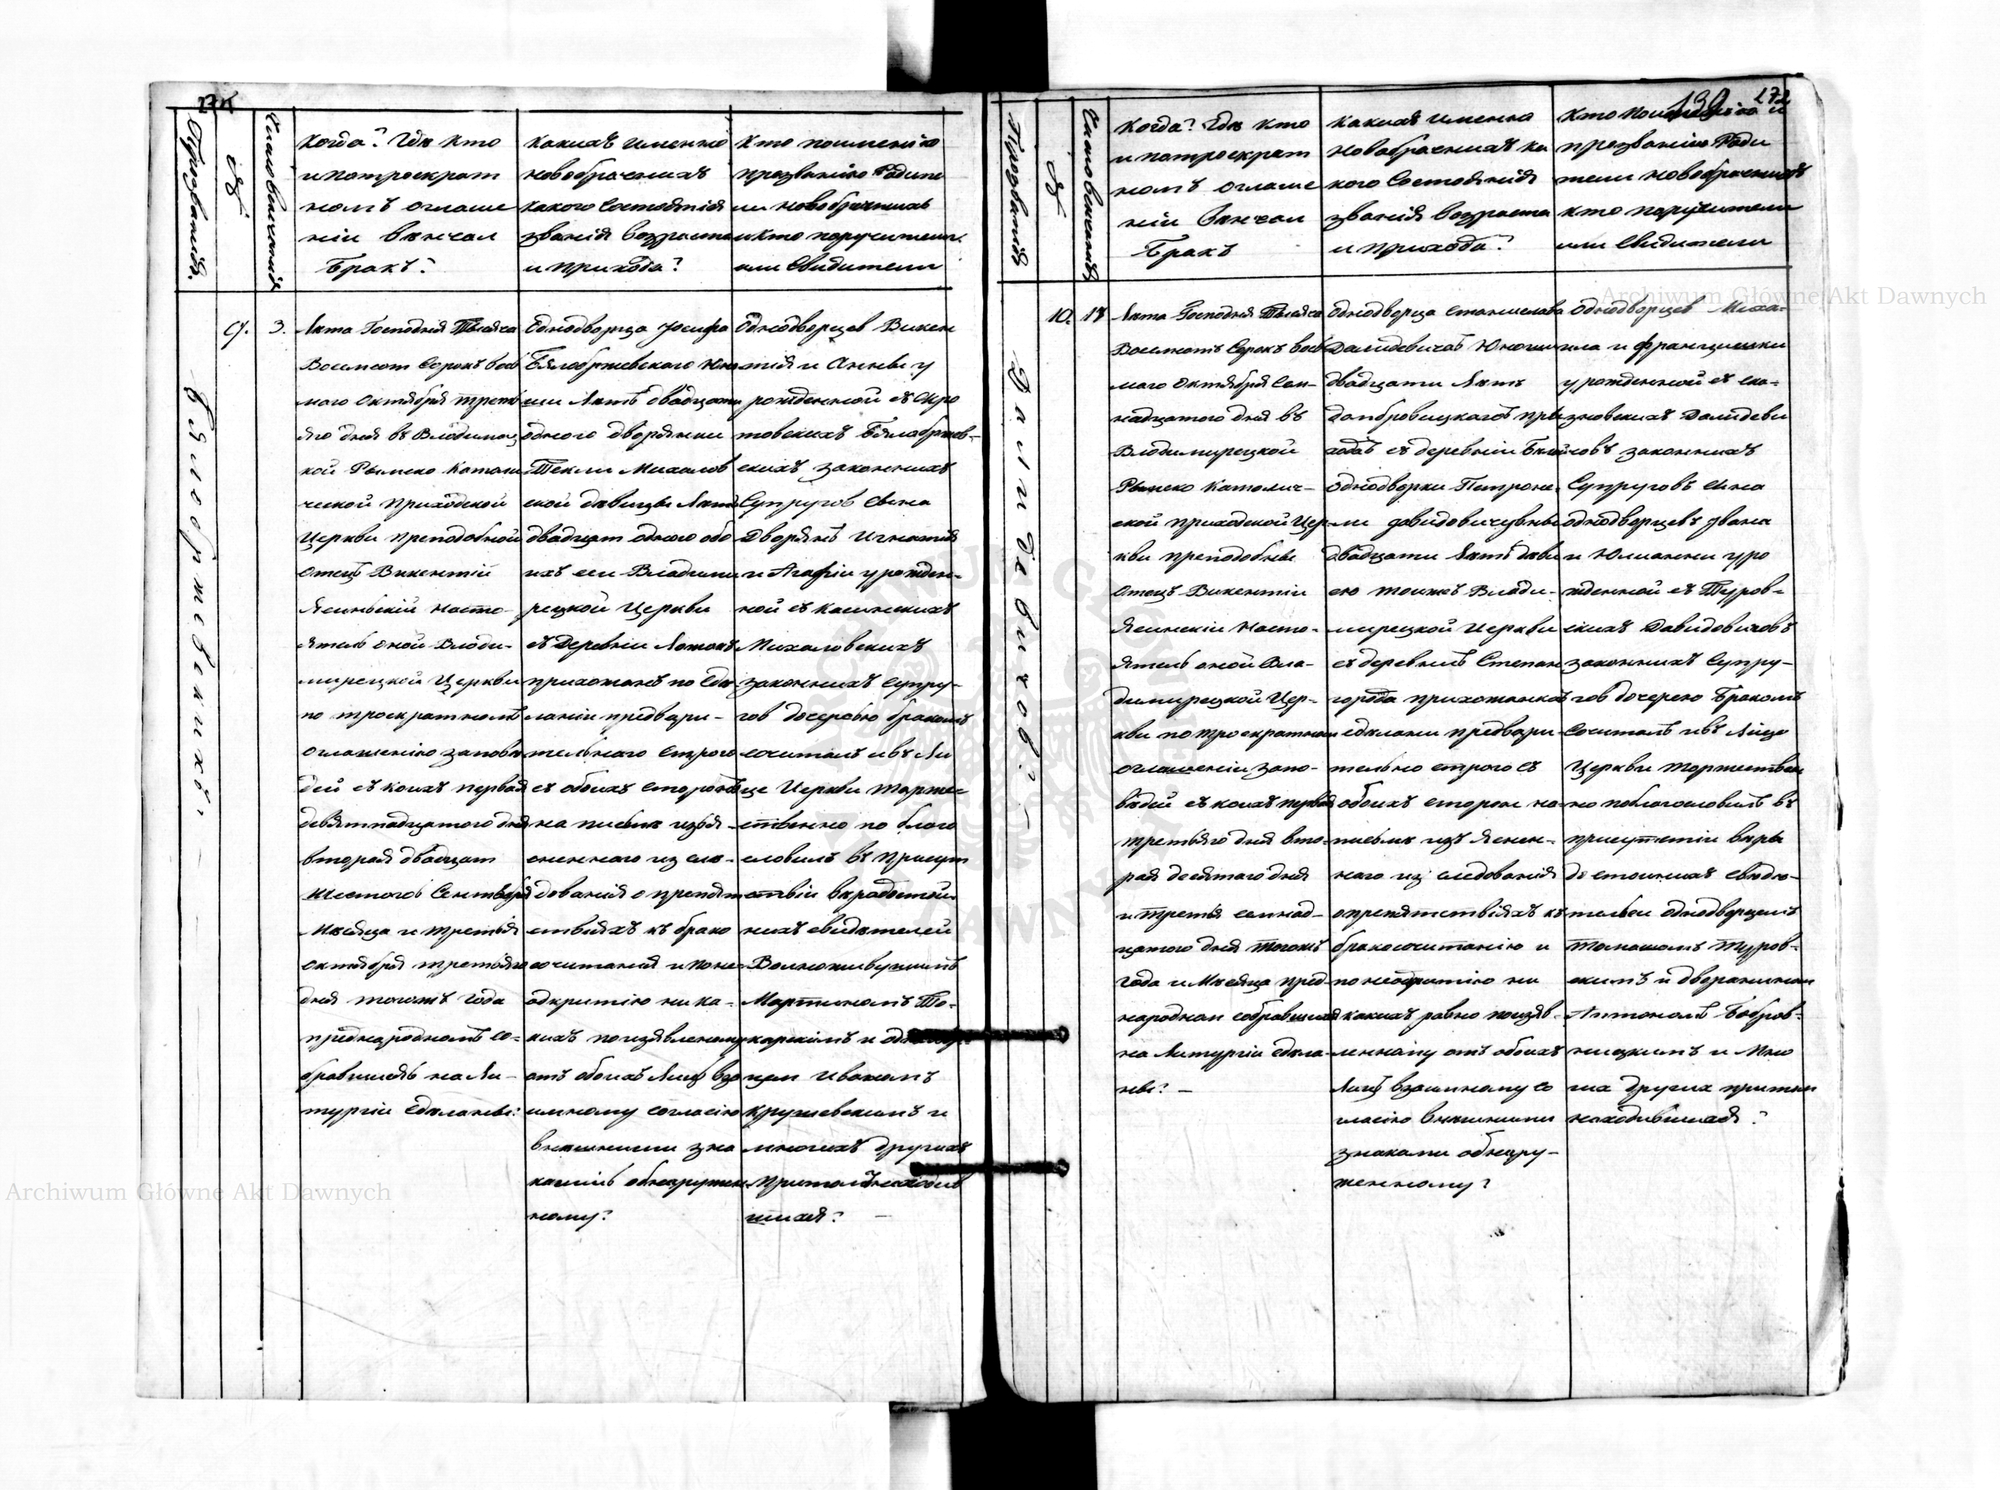 272
Прозванія.
№
Числовенчанія
Когда? Где кто
и потроекрат
номъ оглаше
ніи венчал
Бракъ?
Какихъ именно
новобрачнихъ
какого Состоянія
званія возраста
и прихода?
Кто поименно
прозванію Родите
ли новобрачнихъ
и кто поручители
или Свидители
9.
3.
Бялобржевскихъ
Лѣта Господня Тысяча
Восимсот Сорокъ вось
маго Октября треть
яго дня въ Владимир
кой Римско Католи
ческой приходской
Церкви преподобной
Отецъ Викентій
Ясиньскій насто-
ятель оной Влоди-
мирецкой Церкви
по троекратномъ
оглашению запове
дей съ коихъ первая
девятнадцатого дня
вторая двадцат
шестого Сентября
Месяца и третья
Октября третьяго
дня тогожъ года
преднародномъ со-
бравшемся на Ли-
тургіи сделаны?
Однодворца Іосифа
Бялобржевского Юно
ши Летъ двадцати
одного дворянки
Текли Михалов
ской девицы Летъ
двадцат одного обо
ихъ сеи Владими
рецкой Церкви
съ Деревни
прихожанъ по сде
ланіи предвари-
тельнаго строго
съ обоихъ сторонъ
на письме изъя-
сненнаго из сле-
дованія о препят
ствіяхъ къ брако
сочитания и поне
одкритію ни ка-
кихъ поизявленому
отъ обоихъ Лицъ вза
имному согласію
внешними зна
камъ обнаружен
ному?
Однодворцев Викен
тія и Анны у
рожденной съ
товскихъ Бялобржев-
скихъ законнихъ
Супругов Сына
Дворянъ Игнатія
и Агафіи урожден-
ной съ Касинскихъ
Михаловскихъ
законнихъ Супру-
гов дочерью бракомъ
сочиталъ и въ Ли
це Церкви Торже
ственно по благо
словилъ въ присут
ствіи
нихъ свидетелей
Мартиномъ То-
карскимъ и
цем Иваномъ
Крушевскимъ и
многихъ другихъ
притомъ находив
шихся?
272
Прозванія
№
Числовенчанія
Когда? Где кто
и потроекрат
номъ оглаше
ніи венчал
Бракъ
Какихъ именно
Новобрачнихъ ка
кого Состоянія
званія возраста
и прихода?
Кто поименно и
прозванію Роди
тели новобрачнихъ
кто поручители
или Свидители
10.
17
Далидевичов?
Лѣта Господня Тысяча
Восимсотъ Сорокъ вось
маго Октября Сем-
надцатого дня въ
Влодимирецкой
Римско Католич-
ской приходской Цер-
кви преподобны
Отецъ Викентіи
Ясинскіи Насто-
ятель оной Вла-
димирецкой Цер-
кви по троекратном
оглашеніи запо-
ведей съ коихъ первая
третьяго дня вто-
рая десятого дня
и третья семнад-
цатого дня тогожъ
года и Месяца пред-
народном собравшимся
на Литургіи сдела-
ны? —
Однодворца Станислава
Далидевича Юноши
двадцати Летъ
Домбровицкаго при
хода съ деревни
однодворки Петроне-
ли Давидовичувны
двадцати Летъ деви
ею тоижъ Влоди-
мирецкой Церкви
съ деревни Степан
города прихожанков
сделани предвари
тельно строго съ
обоихъ сторон на
письме изъясенен-
наго из следованія
опрепятствіяхъ къ
бракосочитанію и
по неодкритію ни
какихъ равно поизяв-
ленному отъ обоихъ
Лицъ взаимному со
гласію внешними
знаками обнару-
женному?
Однодворцев Миха-
ила и Францишки
урожденной съ
зновскихъ Далидеви
човъ законнихъ
Супруговъ Сина
однодворцевъ Ивана
и Юлианни уро
жденной съ Туров-
скихъ Давидовичовъ
законнихъ Супру-
гов дочерею Бракомъ
Сочиталъ и въ Лице
Церкви Торжествен
но поблагословилъ въ
присутствіи веры
достоинихъ свиде-
телей однодворцемъ
Томашомъ Туров-
скимъ и дворанином
Антономъ Бобров-
ницкимъ и мно
гих других притом
находившихся?
Archiwum Główne Akt Dawnych
Archiwum Główne Akt Dawnych